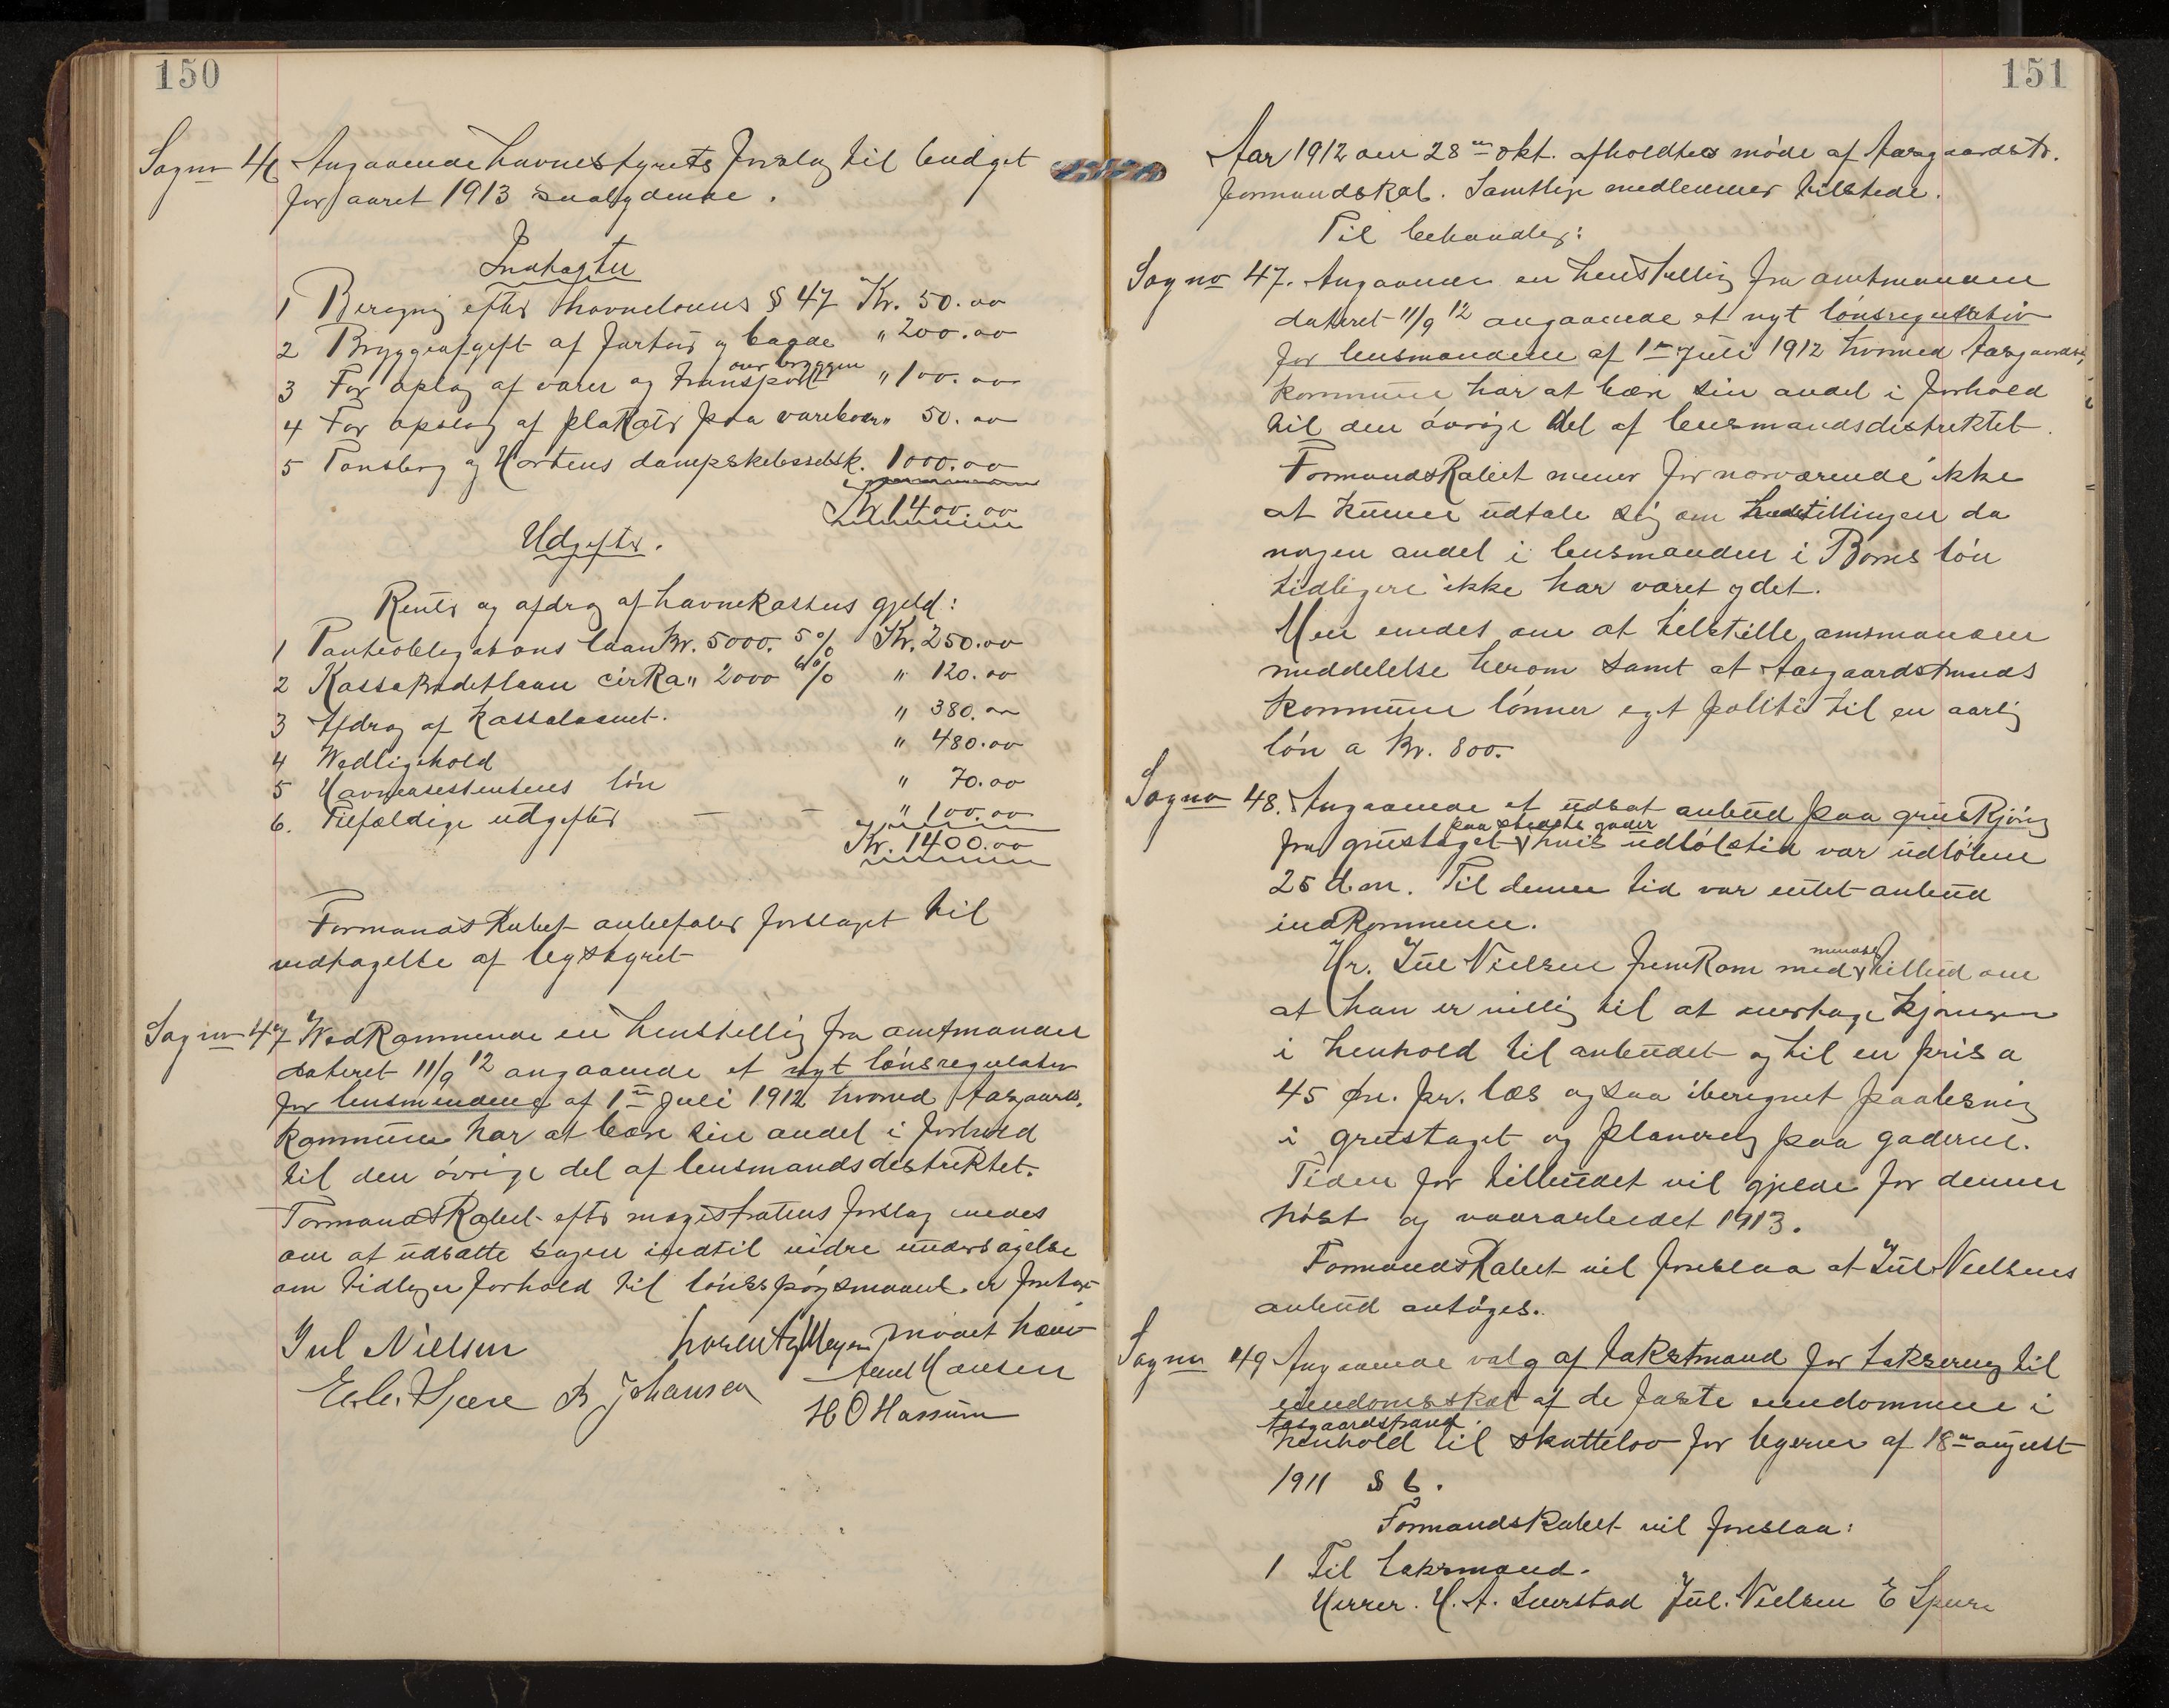 150
Sag no 46 Angaaende havnestyrets forslag til budget
for aaret 1913 saalydende.
Indtægter
1 Beregnig efter Havnelovens § 47 Kr. 50.00
2 Bryggeafgift af fartøier og baade " 200.00
3 For oplag af varer og transport over bryggen " 100.00
4 For opslag af plakater paa vareboden " 50.00
5 Tønsberg og Hortens dampskibsselsk. 1000.00
Kr 1400.00
Udgifter.
Renter og afdrag af havnekassens gjeld:
1 Panteobligations laan Kr. 5000. 5% Kr. 250.00
2 Kassakreditlaan cirka " 2000 6% " 120.00
3 Afdrag af kassalaanet. " 380.00
4 Vedligehold " 480.00
5 Havneassistentens løn " 70.00
6. Tilfældige udgifter — — " 100.00
Kr. 1400.00
Formandskabet anbefaler forslaget til
vedtagelse af bystyret
Sag no 47 Vedkommende en henstillig fra amtmanden
dateret 11/9 12 angaaende et nyt lønsregulativ
for lensmendene af 1ste Juli 1912 hvorved Aasgaards.
kommune har at bære sin andel i forhold
til den øvrige del af lensmandsdistriktet.
Formandskabet efter magistratens forslag enedes
om at udsætte sagen indtil vidre undersøgelse
om tidligere forhold til lønsspørgsmaal. er foretaget
mødet hævet
Jul Nielsen Lorentz Meyer Axel Hansen
E. Spere B Johansen H O Hassum
151
Aar 1912 den 28de okt. afholdtes møde af Aasgaardstr.
formandskab. Samtlige medlemmer tilstede.
Til behandlig:
Sag no 47. Angaaende en henstillig fra amtmanden
dateret 11/9 12 angaaende et nyt lønsregulativ
for lensmændene af 1ste Juli 1912 hvorved Aasgaardstr.
kommune har at bære sin andel i forhold
til den øvrige del af lensmandsdistriktet.
Formandskabet mener for nærværende ikke
at kunne udtale sig om henstillingen da
nogen andel i lensmanden i Borres løn
tidligere ikke har været ydet.
Men enedes om at tilstille amtmanden
meddelelse herom samt at Aasgaardstrands
kommune lønner eget politi til en aarlig
løn a Kr. 800.
Sag no 48. Angaaende et udsat anbud paa gruskjørig
fra grustaget paa stedets gader hvis udløbstid var udløben
25 d.m. Til denne tid var intet anbud
indkommen.
Hr. Jul Nielsen fremkom med mundtl. tilbud om
at han er villig til at overtage kjøringen
i henhold til anbudet og til en pris a
45 øre. pr. læs ogsaa iberegnet paalæsnig
i grustaget og planerig paa gaderne.
Tiden for tilbudet vil gjelde for denne
høst og vaararbeidet 1913.
Formandskabet vil foreslaa at Jul Nielsens
anbud antages.
Sag no 49 Angaaende valg af takstmænd for taksering til
eiendomsskat af de faste eiendomme i
Aasgaardstrand.
henhold til skattelov for byerne af 18de august
1911 § 6.
Formandskabet vil foreslaa:
1 Til takstmænd.
Herrer. H. A. Leverstad Jul. Nielsen E Spere